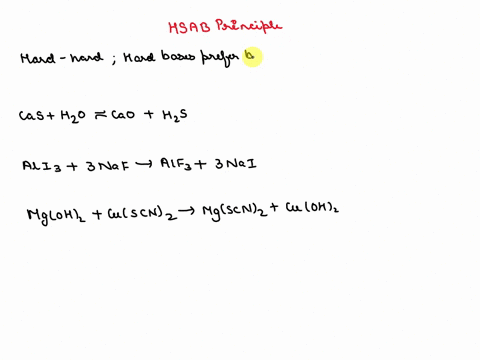 HSAB Principle
Hard-hard ; Hard bases prefer b
CaS + H₂O ⇌ CaO + H₂S
AlI₃ + 3NaF → AlF₃ + 3NaI
Mg(OH)₂ + Cu(SCN)₂ → Mg(SCN)₂ + Cu(OH)₂